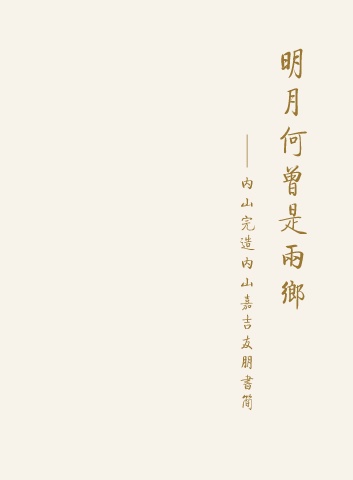 明月何曾是兩鄉
——内山完造内山嘉吉友朋書簡